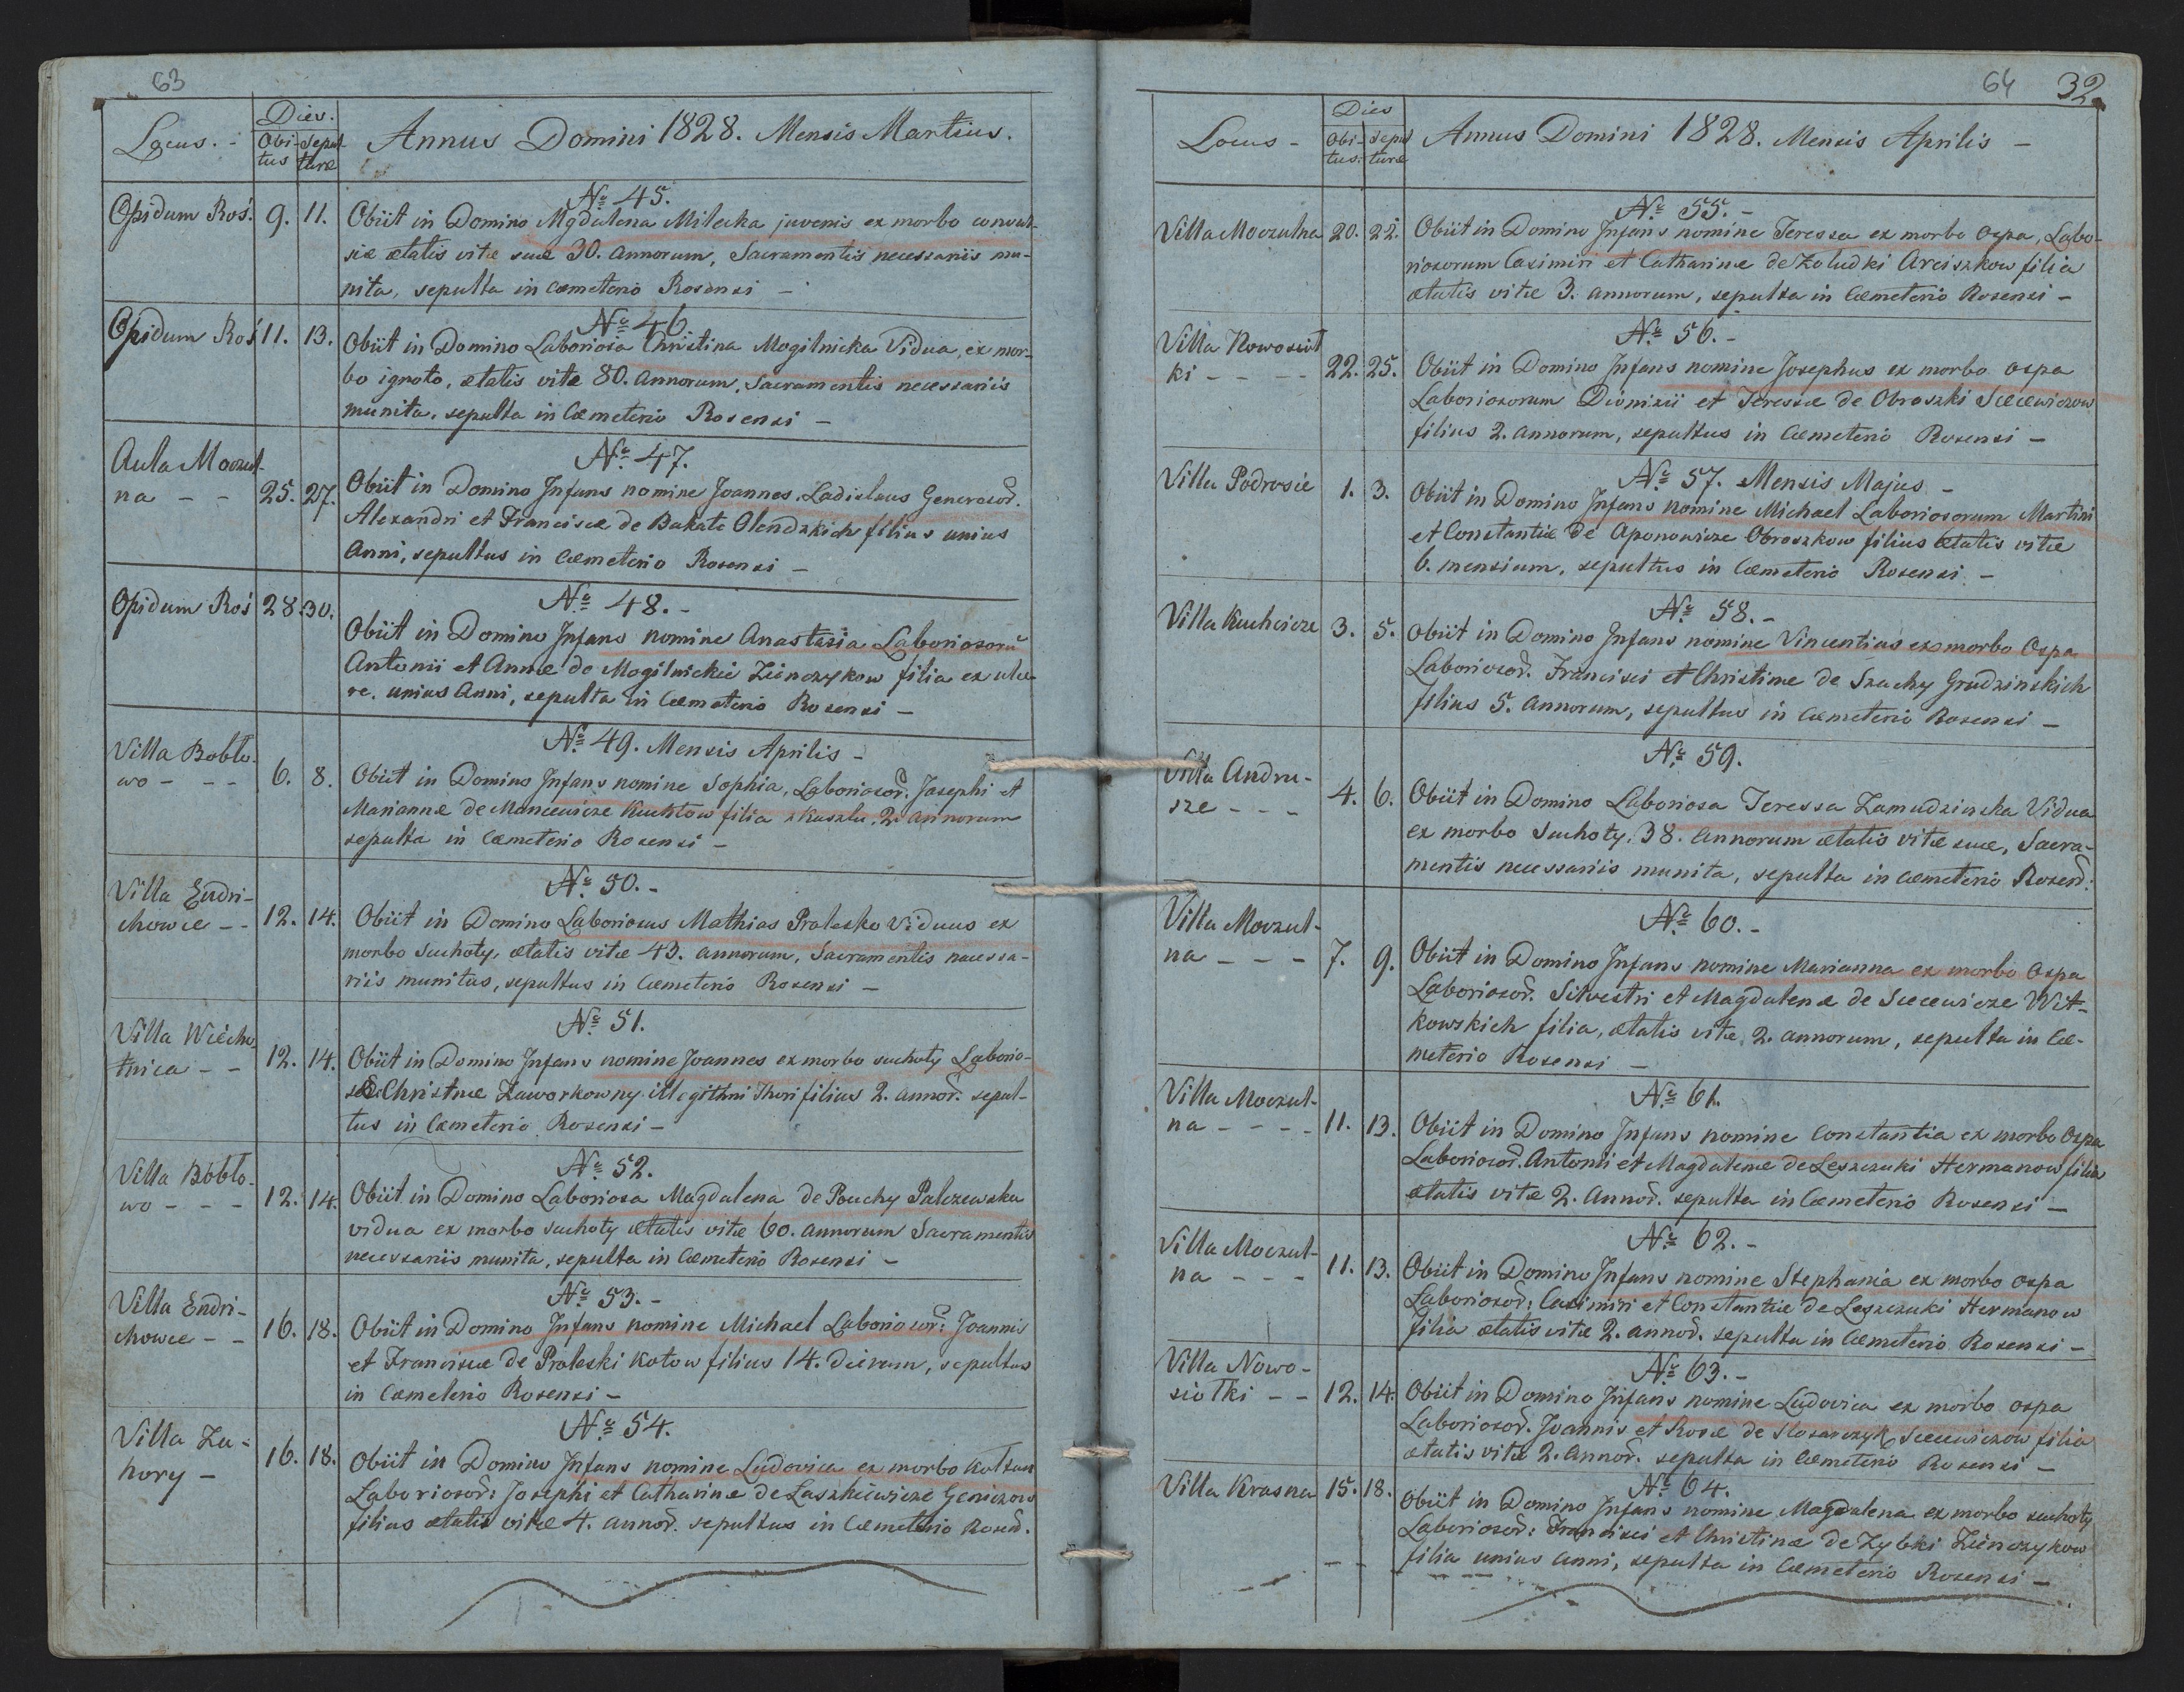 63
Locus. -
Dies.
Obi-
tus
Sepul-
turæ
Annus Domini 1828. Mensis Martius.
Nº 45.
Opidum Roś. 9. 11. Obiit in Domino Mgdalena Milecka juvenis ex morbo convul-
siæ ætatis vitæ suæ 30. annorum, Sacramentis necessariis mu-
nita, sepulta in Cæmeterio Rosensi -
Nº 46
Opidum Roś 11. 13. Obiit in Domino Laboriosa Christina Mogilnicka Vidua, ex mor-
bo ignoto, ætatis vitæ 80. annorum, Sacramentis necessariis
munita, sepulta in Cæmeterio Rosensi -
Nº 47.
Aula Moczul-
na - - 25. 27. Obiit in Domino Infans nomine Joannes Ladislaus Generosor.
Alexandri et Franciscæ de Bakate Olendzkich filius unius
Anni, sepultus in Cæmeterio Rosensi -
Nº 48. -
Opidum Roś 28. 30. Obiit in Domino Infans nomine Anastasia Laboriosorū
Antonii et Annæ de Mogilnickie Zienczykow filia ex ulce-
re, unius Anni, sepulta in Cæmeterio Rosensi -
Nº 49. Mensis Aprilis -
Villa Bobło-
wo - - - 6. 8. Obiit in Domino Infans nomine Sophia, Laboriosor. Josephi et
Mariannæ de Moncewicze Kuchtow filia z kaszlu, 2. annorum
sepulta in Cæmeterio Rosensi -
Nº 50. -
Villa Endri-
chowce - - 12. 14. Obiit in Domino Laboriosus Mathias Prolesko Viduus ex
morbo Suchoty, ætatis vitæ 43. annorum, Sacramentis necessa-
riis munitus, sepultus in Cæmeterio Rosensi -
Nº 51.
Villa Wiecho-
tnica - - 12. 14. Obiit in Domino Infans nomine Joannes ex morbo suchoty Laborio-
sæ Christinæ Zaworkowny illegithni Thori filius 2. annor. sepul-
tus in Cæmeterio Rosensi -
Nº 52.
Villa Bobło-
wo - - - 12. 14. Obiit in Domino Laboriosa Magdalena de Pouchy Palczewska
vidua ex morbo suchoty ætatis vitæ 60. annorum Sacramentis
necessariis munita, sepulta in Cæmeterio Rosensi -
Nº 53. -
Villa Endri-
chowce - - 16. 18. Obiit in Domino Infans nomine Michael Laboriosor: Joannis
et Franciscæ de Proleski Kotow filius 14. dierum, sepultus
in Cæmeterio Rosensi -
Nº 54.
Villa Za-
hory - 16. 18. Obiit in Domino Infans nomine Ludovica ex morbo Koltun
Laboriosor: Josephi et Catharinæ de Laszkiewicze Geniczow
filius ætatis vitæ 4. annor. sepultus in Cæmeterio Rosen.
64 32
Locus -
Dies
Obi-
tus:
Sepul
turæ
Annus Domini 1828. Mensis Aprilis -
Nº 55. -
Villa Moczulna 20. 22. Obiit in Domino Infans nomine Teressa ex morbo Ospa, Labo-
riosorum Casimiri et Catharinæ de Zoludki Arciszkow filia
ætatis vitæ 3. annorum, sepulta in Cæmeterio Rosensi -
Nº 56. -
Villa Nowosioł
ki - - - - 22. 25. Obiit in Domino Infans nomine Josephus ex morbo ospa
Laboriosorum Dionizii et Teressæ de Obroszki Siecewiczow
filius 2. annorum, sepultus in Cæmeterio Rosensi -
Nº 57. Mensis Majus -
Villa Podrosie 1. 3. Obiit in Domino Infans nomine Michael Laboriosorum Martini
et Constantiæ de Aponowicze Obroszkow filius ætatis vitæ
6. mensium, sepultus in Cæmeterio Rosensi -
Nº 58. -
Villa Kuchcicze 3. 5. Obiit in Domino Infans nomine Vincentius ex morbo Ospa
Laboriosor. Francisci et Christinæ de Szachy Grudzinskich
filius 5. annorum, sepultus in Cæmeterio Rosensi -
Nº 59.
Villa Andru-
sze - - - 4. 6. Obiit in Domino Laboriosa Teressa Zamudzinska Vidua
ex morbo Suchoty. 38. annorum ætatis vitæ suæ, Sacra-
mentis necessariis munita, sepulta in Cæmeterio Rosen:
Nº 60. -
Villa Moczul-
na - - - 7. 9. Obiit in Domino Infans nomine Marianna ex morbo Ospa
Laboriosor. Silvestri et Magdalenæ de Siecewicze Wit-
kowskich filia, ætatis vitæ 2. annorum, sepulta in Cæ-
meterio Rosensi -
Nº 61.
Villa Moczul-
na - - - - 11. 13. Obiit in Domino Infans nomine Constantia ex morbo Ospa
Laboriosor. Antonii et Magdalenæ de Leszczuki Hermanow filia
ætatis vitæ 2. Annor. sepulta in Cæmeterio Rosensi -
Nº 62. -
Villa Moczul-
na - - - 11. 13. Obiit in Domino Infans nomine Stephania ex morbo ospa
Laboriosor: Casimiri et Constantiæ de Leszczuki Hermanow
filia ætatis vitæ 2. annor. sepulta in Cæmeterio Rosensi -
Nº 63. -
Villa Nowo-
siołki - - 12. 14. Obiit in Domino Infans nomine Ludovica ex morbo ospa
Laboriosor. Joannis et Rosæ de Slosarczyk Siecewiczow filia
ætatis vitæ 2. Annor. sepulta in Cæmeterio Rosensi -
Nº 64.
Villa Krasna 15. 18. Obiit in Domino Infans nomine Magdalena ex morbo suchoty
Laboriosor: Francisci et Christinæ de Zybki Zienczykow
filia unius Anni, sepulta in Cæmeterio Rosensi -